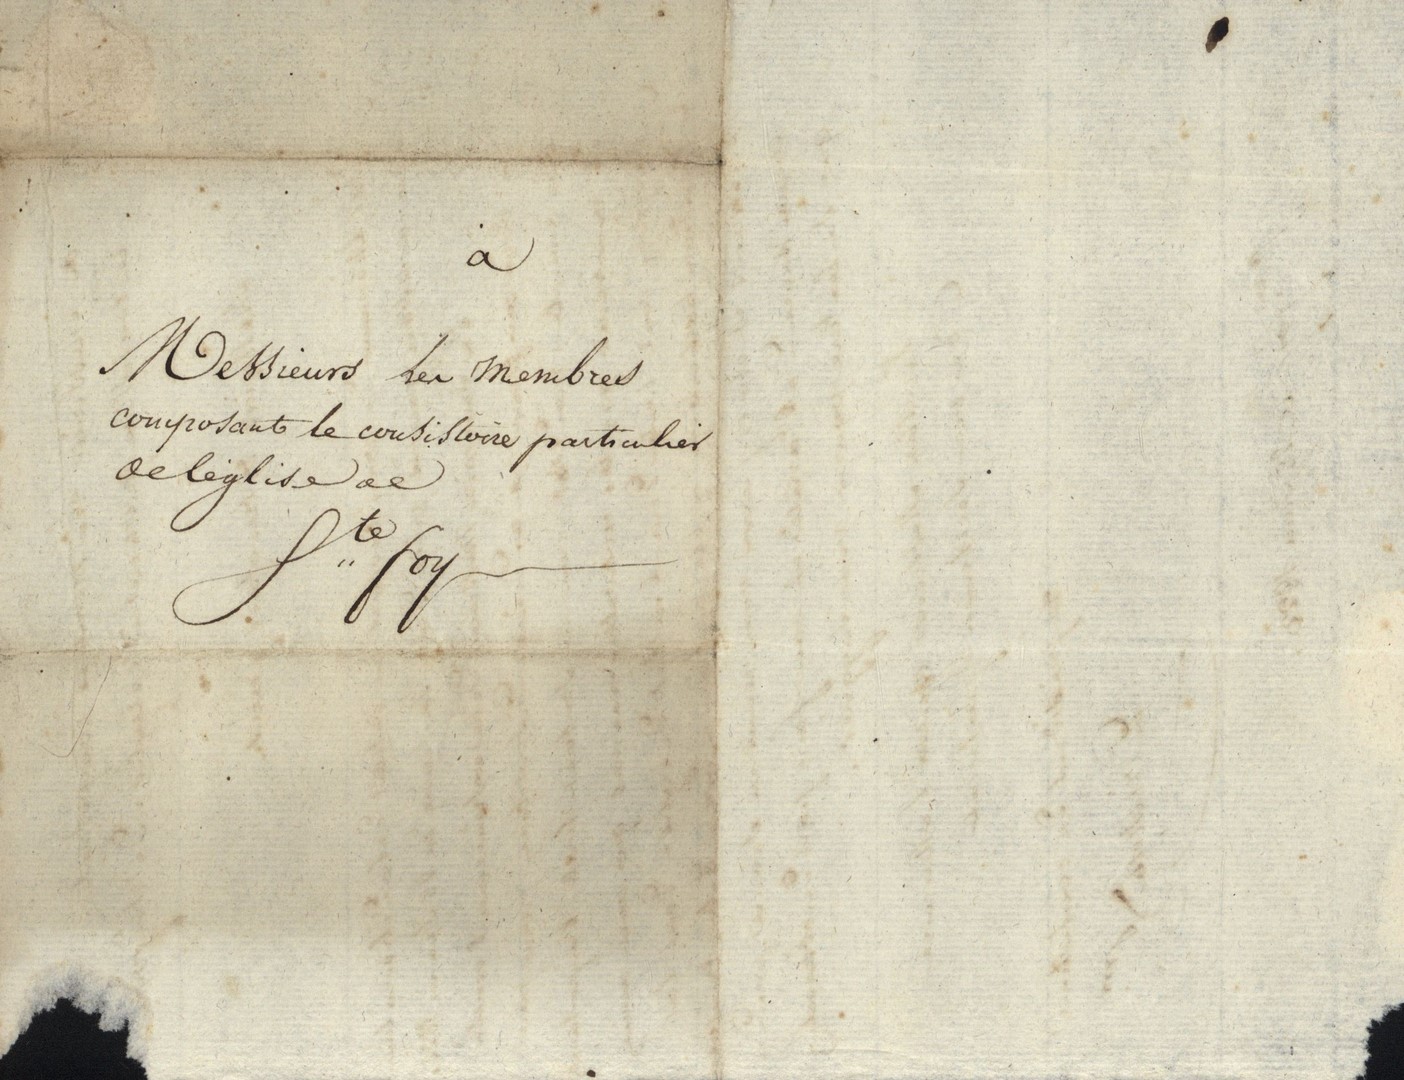 a
Messieurs les membres
composants le consistoire particulier
de l'église de
S.te foy